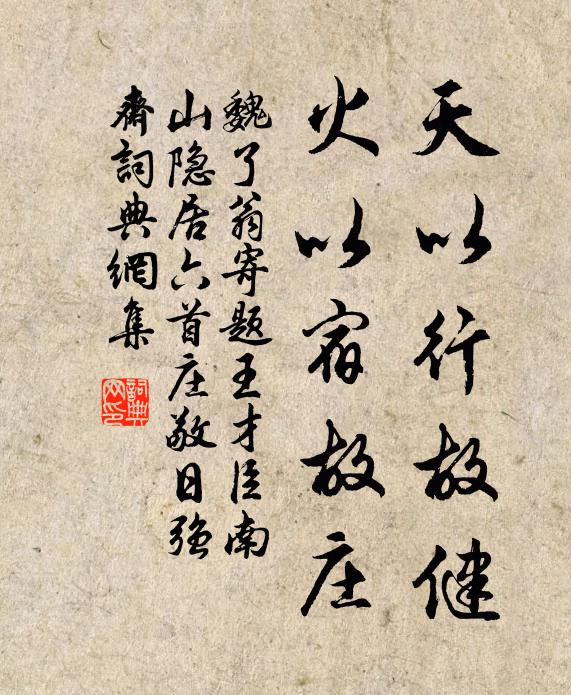 天以行故健
火以宿故庄
魏了翁寄题王才臣南
山隐居六首庄敬日强
斋詞典網集
詞典
网印